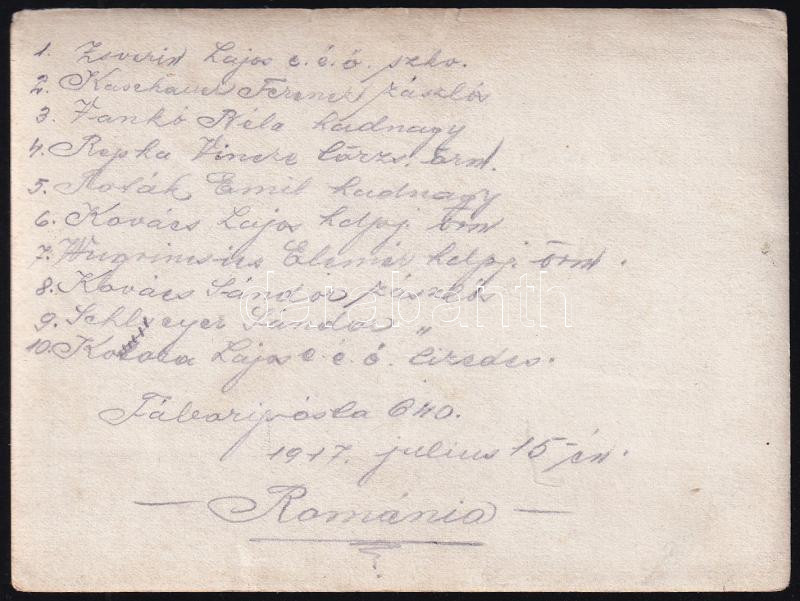 1. Zsverin Lajos e. é. ö. szkv.
2. Kaschauer Ferenc zászlós
3. Vankó Béla hadnagy
4. Repka Vincze törzs. őrm.
5. Novák Emil hadnagy
6. Kovács Lajos hdpj. őrm
7. Elemér hdpj. őrm.
8. Kovács Sándor zászlós
9. Schlseyer Sándor "
10. Lajos e. é. ö. tizedes.
Táboriposta 640.
1917. július 15-én.
— Románia —
darabanth